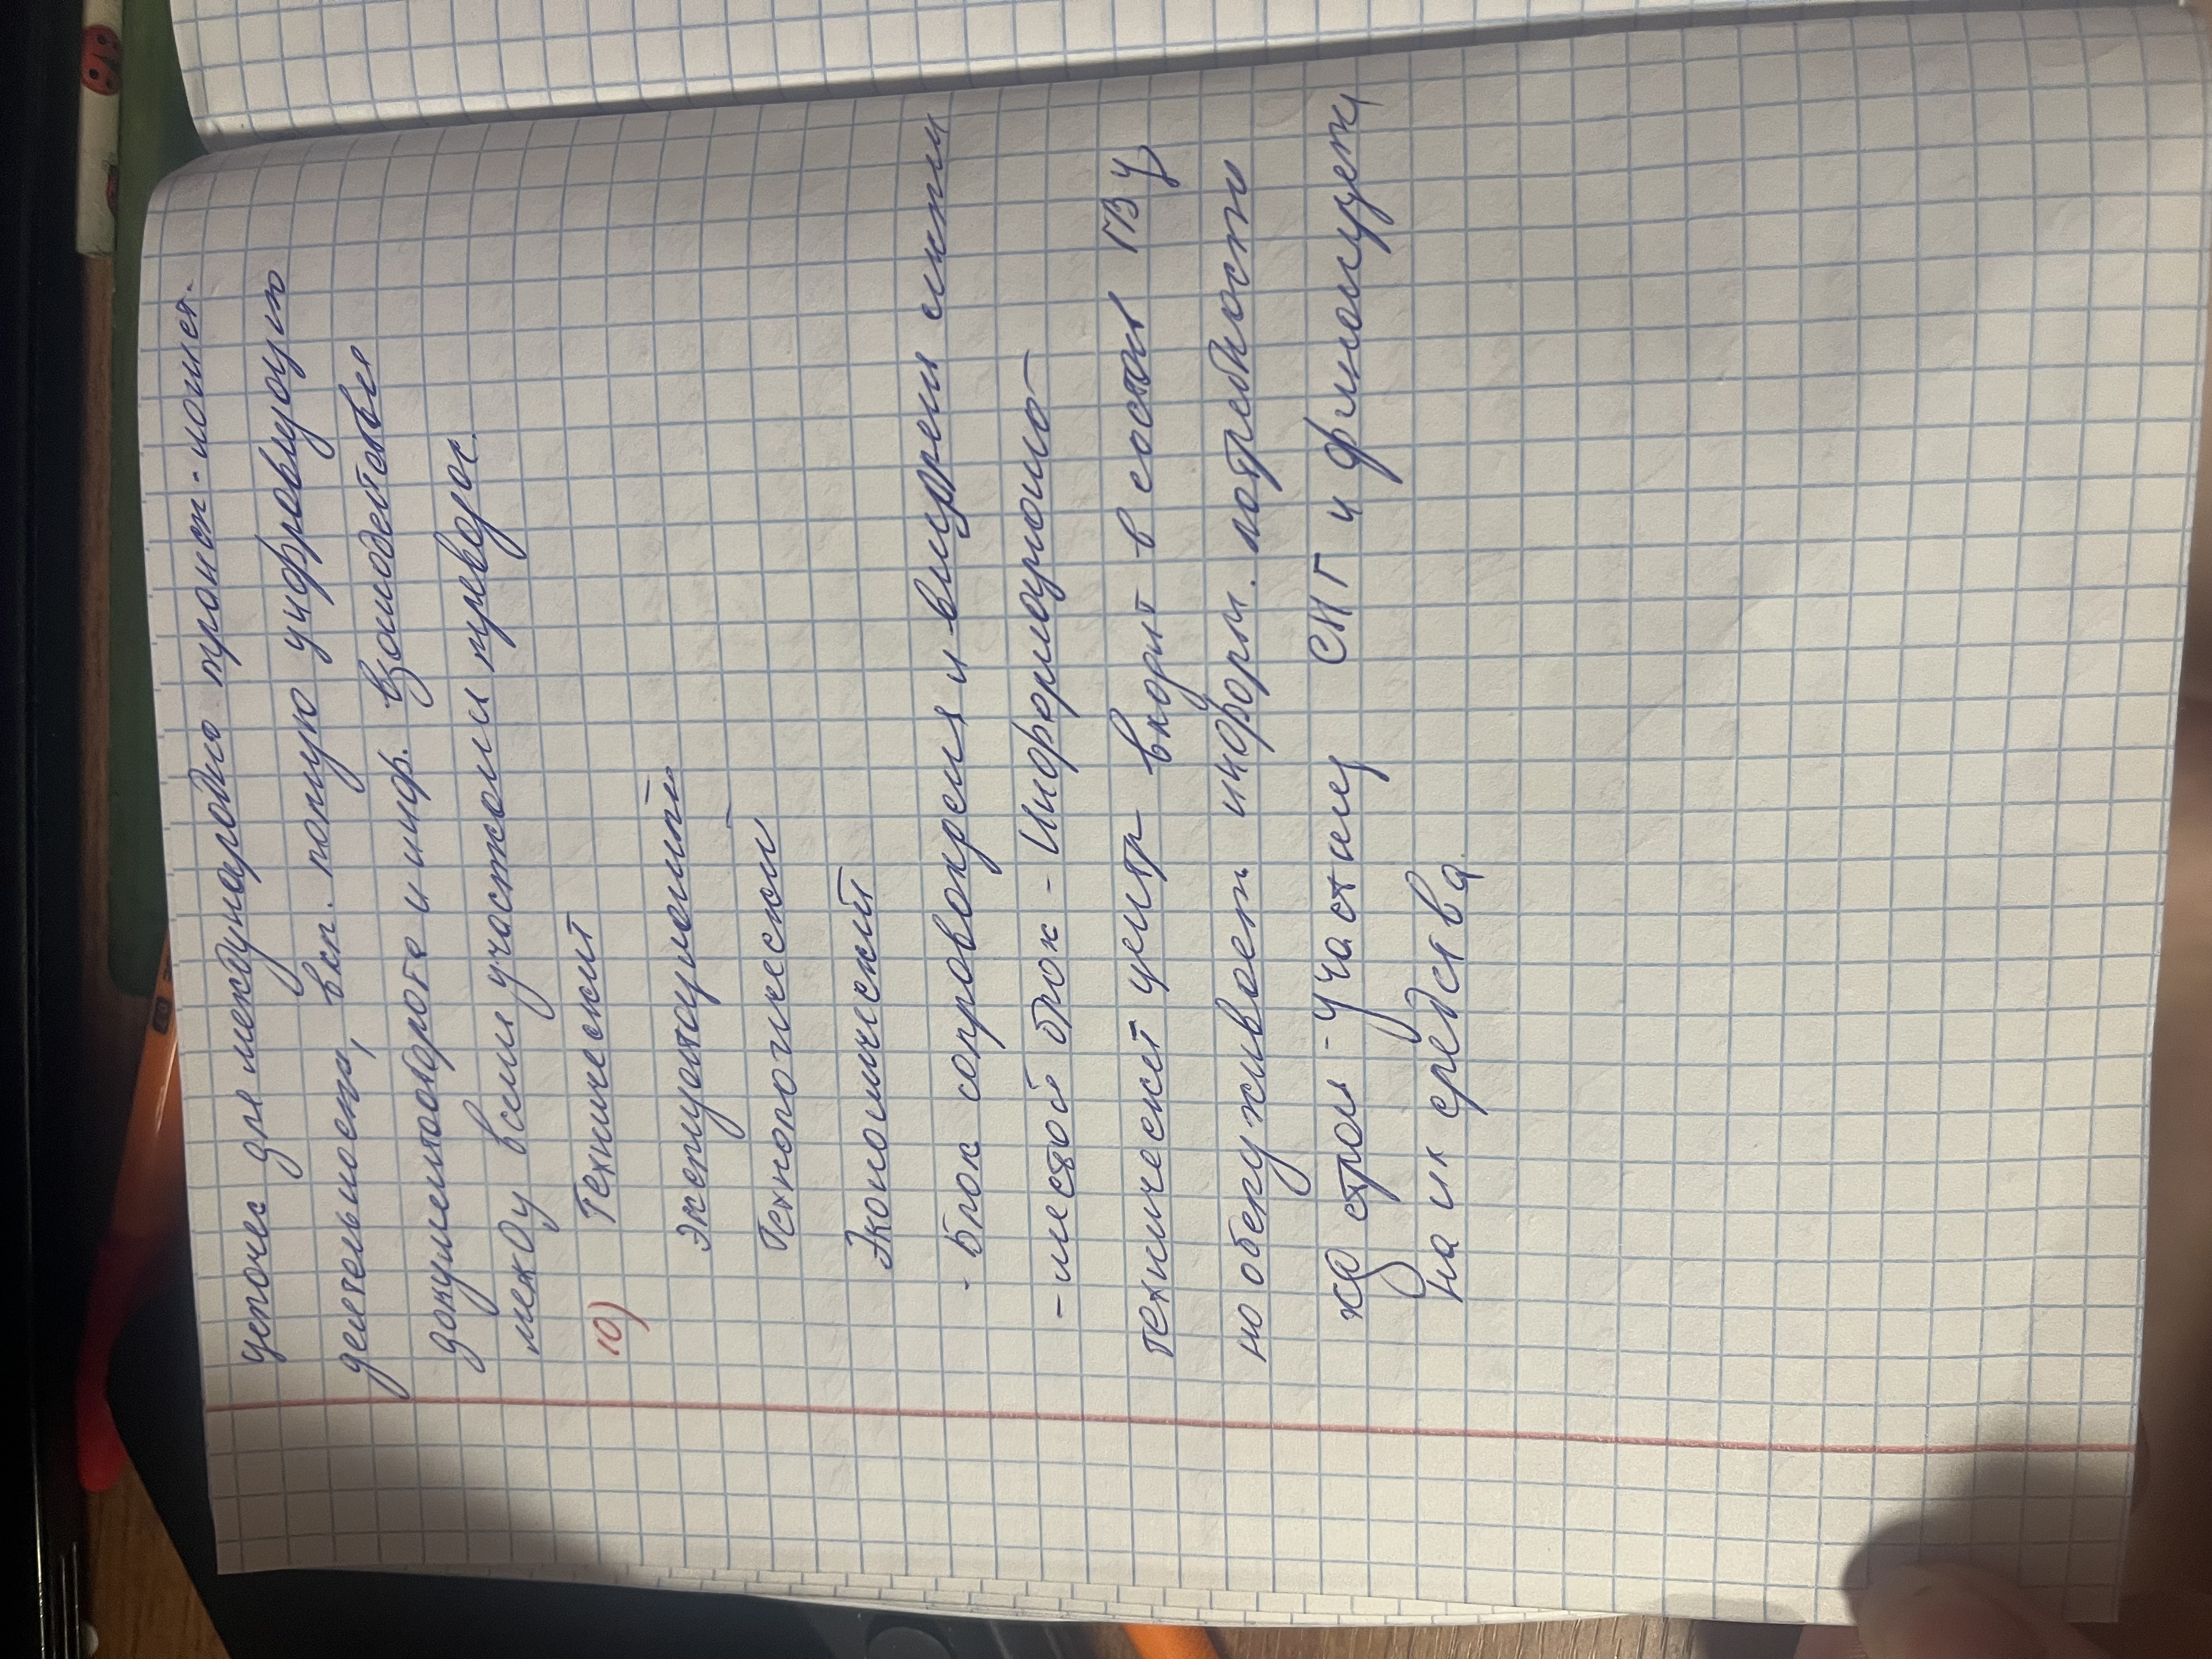 цепочек для международно трансп-логист.
деятельности, вкл. полную цифровизацию
документооборота и инф. взаимодействие
между всеми участками перевозок.
10) Технический
Эксплуатационный
Технологический
Экономический
- Блок сопровождения и внедрения
- шестой блок - Информационно-
технический центр входит в состав ГВЦ
но обслуживает информ. потребности
ж/д стран-участниц СНГ и финансируем
на их средства.